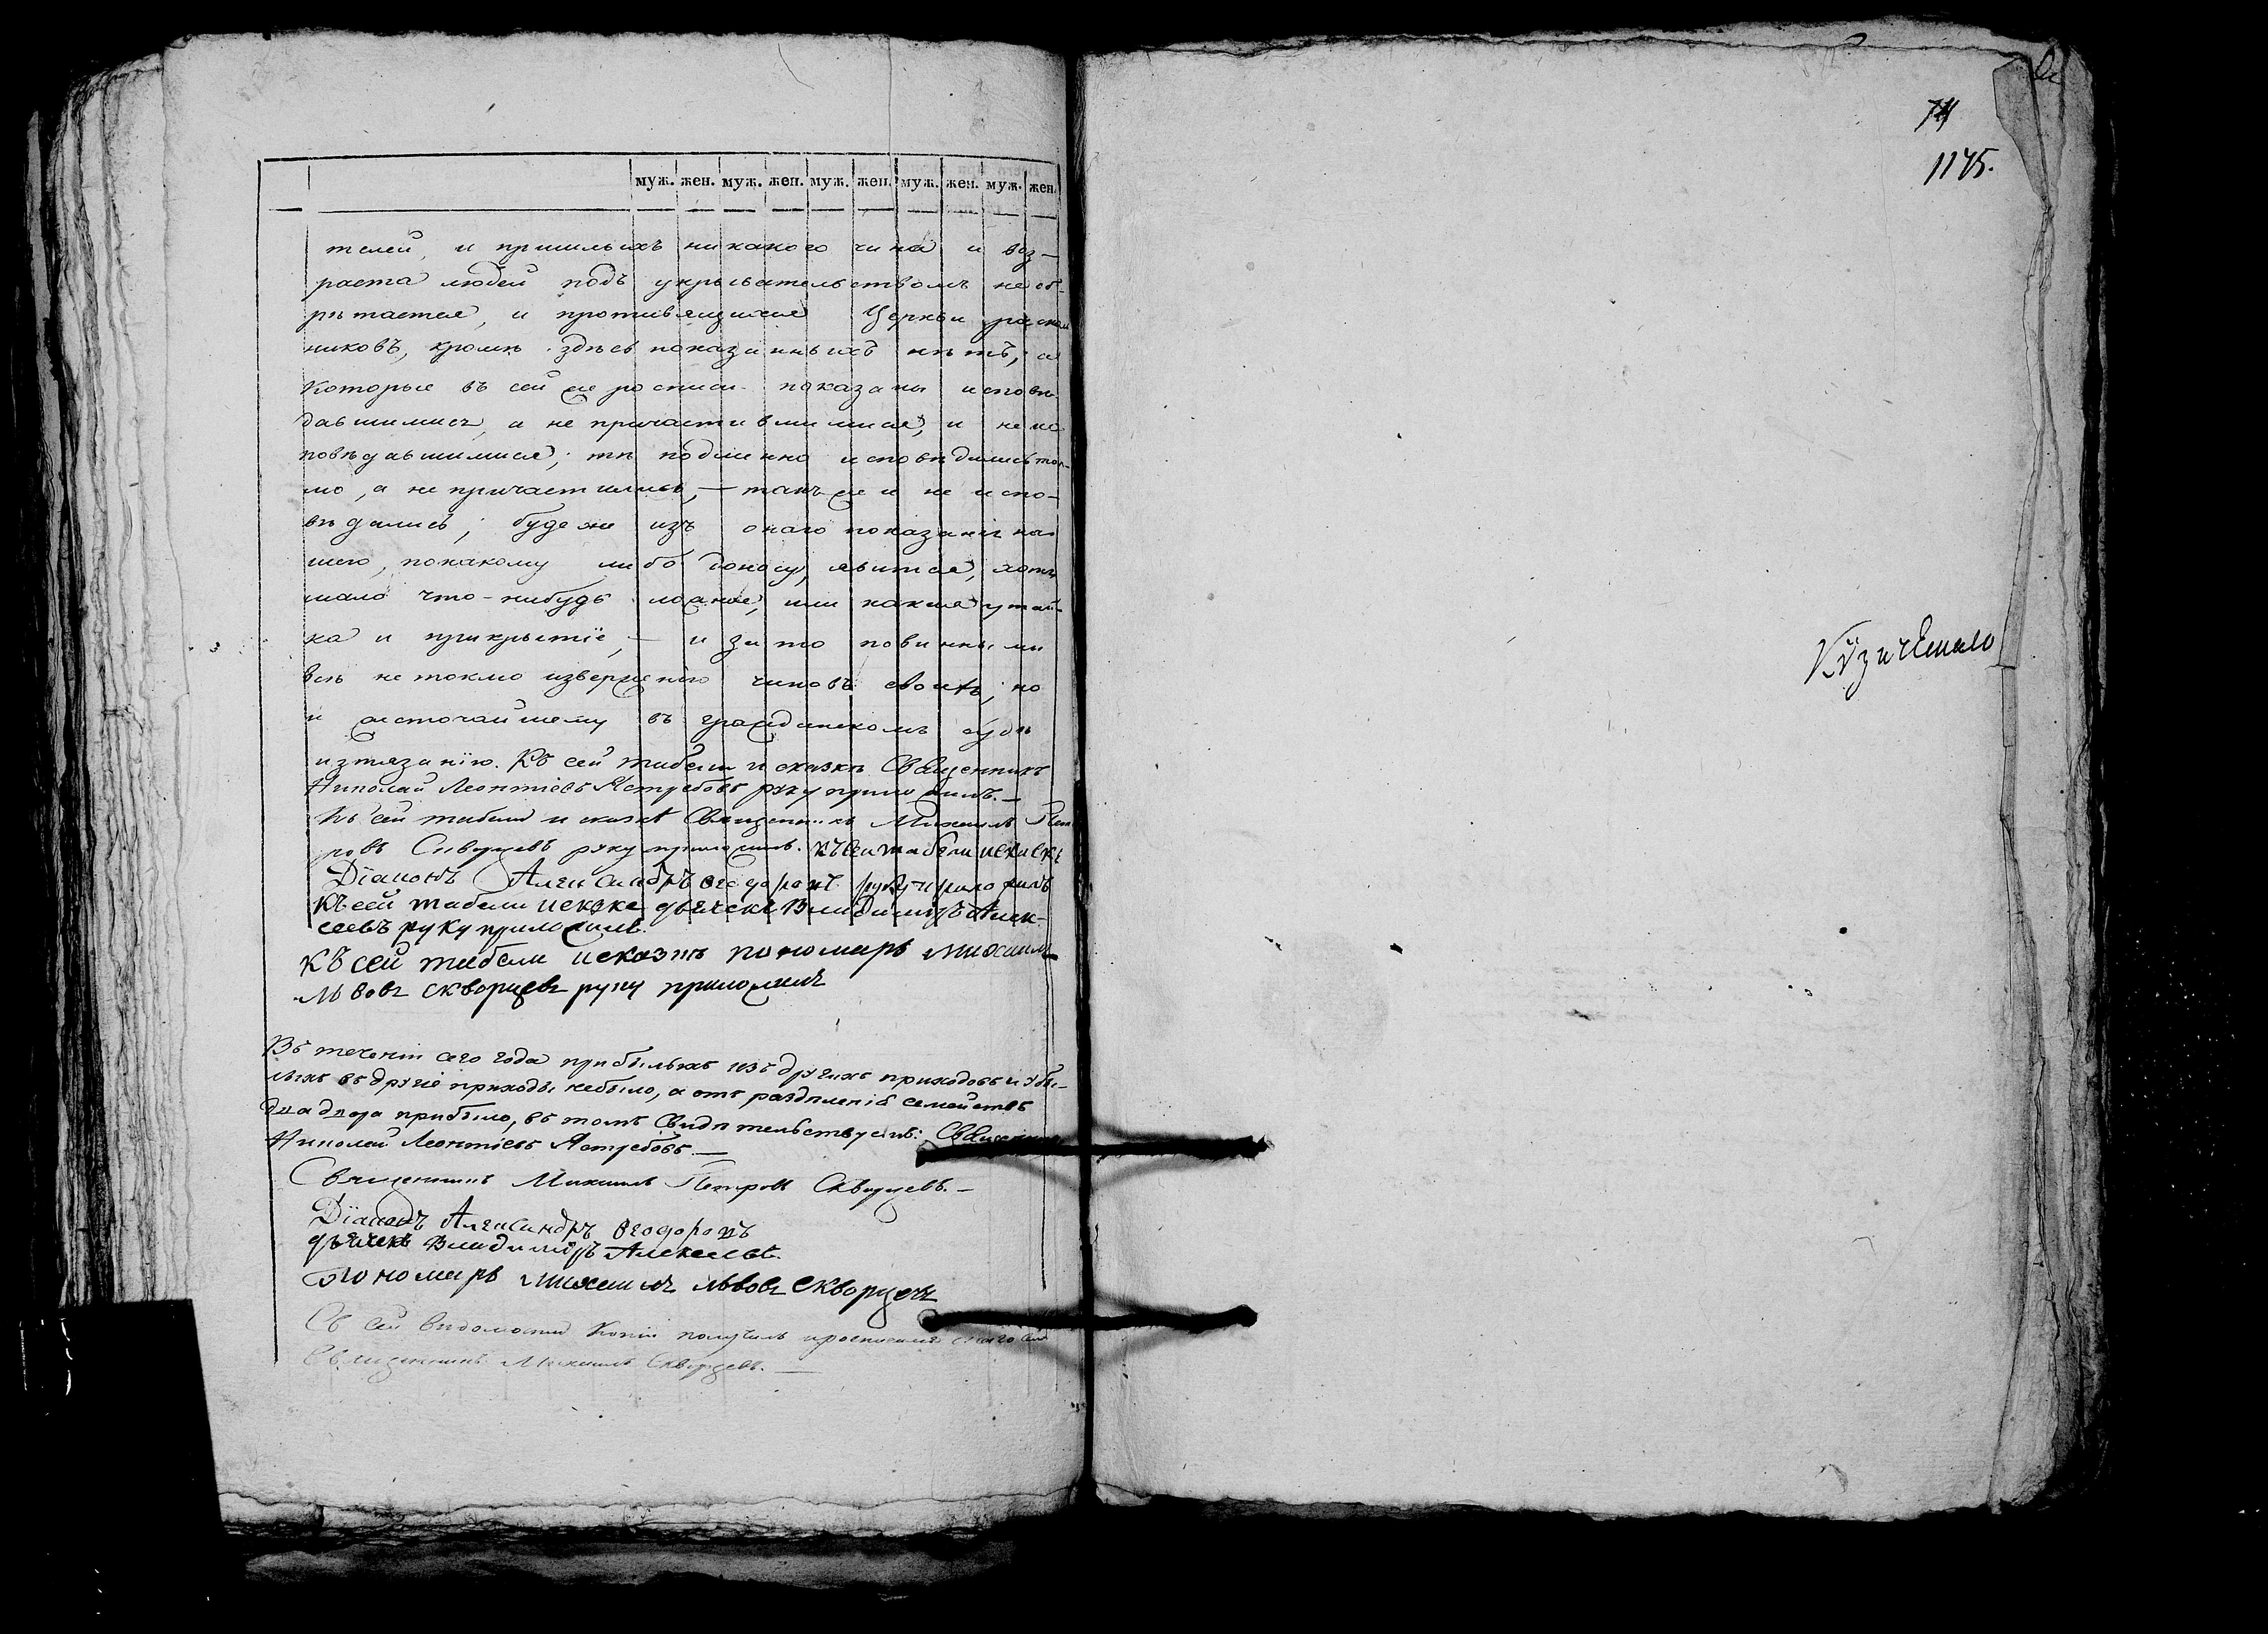 муж. жен. муж. жен. муж. жен. муж. жен. муж. жен.
телей, и пришлыхъ никакого чина и воз-
раста людей подъ укрывательствомъ не об-
рѣтается, и противящихся Церкви раскол
никовъ, кромѣ здѣсь показанныхъ нѣтъ; а
которые въ сей же росписи показаны исповѣ-
давшимися, а не причастившимися, и не ис
повѣдавшимися; тѣ подлинно исповѣдались ток-
мо, а не причастились, — такъ же и не испо-
вѣдались; буде же изъ онаго показанія на
шего, по какому либо доносу, явится, хотя
мало что-нибудь ложное, или какая утай-
ка и прикрытіе, — и за то повинны мы
всѣ не токмо изверженію чиновъ своихъ; но
и жесточайшему въ гражданскомъ судѣ
изтязанію. Къ сей табели и сказкѣ Священникъ
Николай Леонтіевъ Ястребовъ руку приложилъ. —
Къ сей табели и сказкѣ Священникъ Михаилъ Пет
ровъ Скворцевъ руку приложилъ. Къ сей табели и скаскѣ
Діаконъ Александръ Ѳеодоровъ руку приложилъ
Къ сей табели и сказке дьячекъ Владимиръ Алек-
сеевъ руку приложилъ.
Къ сей табели и сказкѣ пономарь Михаилъ
Львовъ Скворцевъ руку приложилъ
Въ теченіи сего года прибылыхъ изъ другихъ приходовъ и убы-
лыхъ въ другіе приходы небыло, а отъ раздѣленія семействъ
два двора прибыло, въ томъ свидѣтельствуемъ: Священникъ
Николай Леонтіевъ Ястребовъ. —
Священникъ Михаилъ Петровъ Скворцевъ. —
Діаконъ Александръ Ѳеодоровъ
дьячекъ Владимиръ Алексеевъ.
Пономарь Михаилъ Львовъ Скворцевъ
Съ сей вѣдомости копію получилъ
Священникъ Михаилъ Скворцевъ. —
1175.